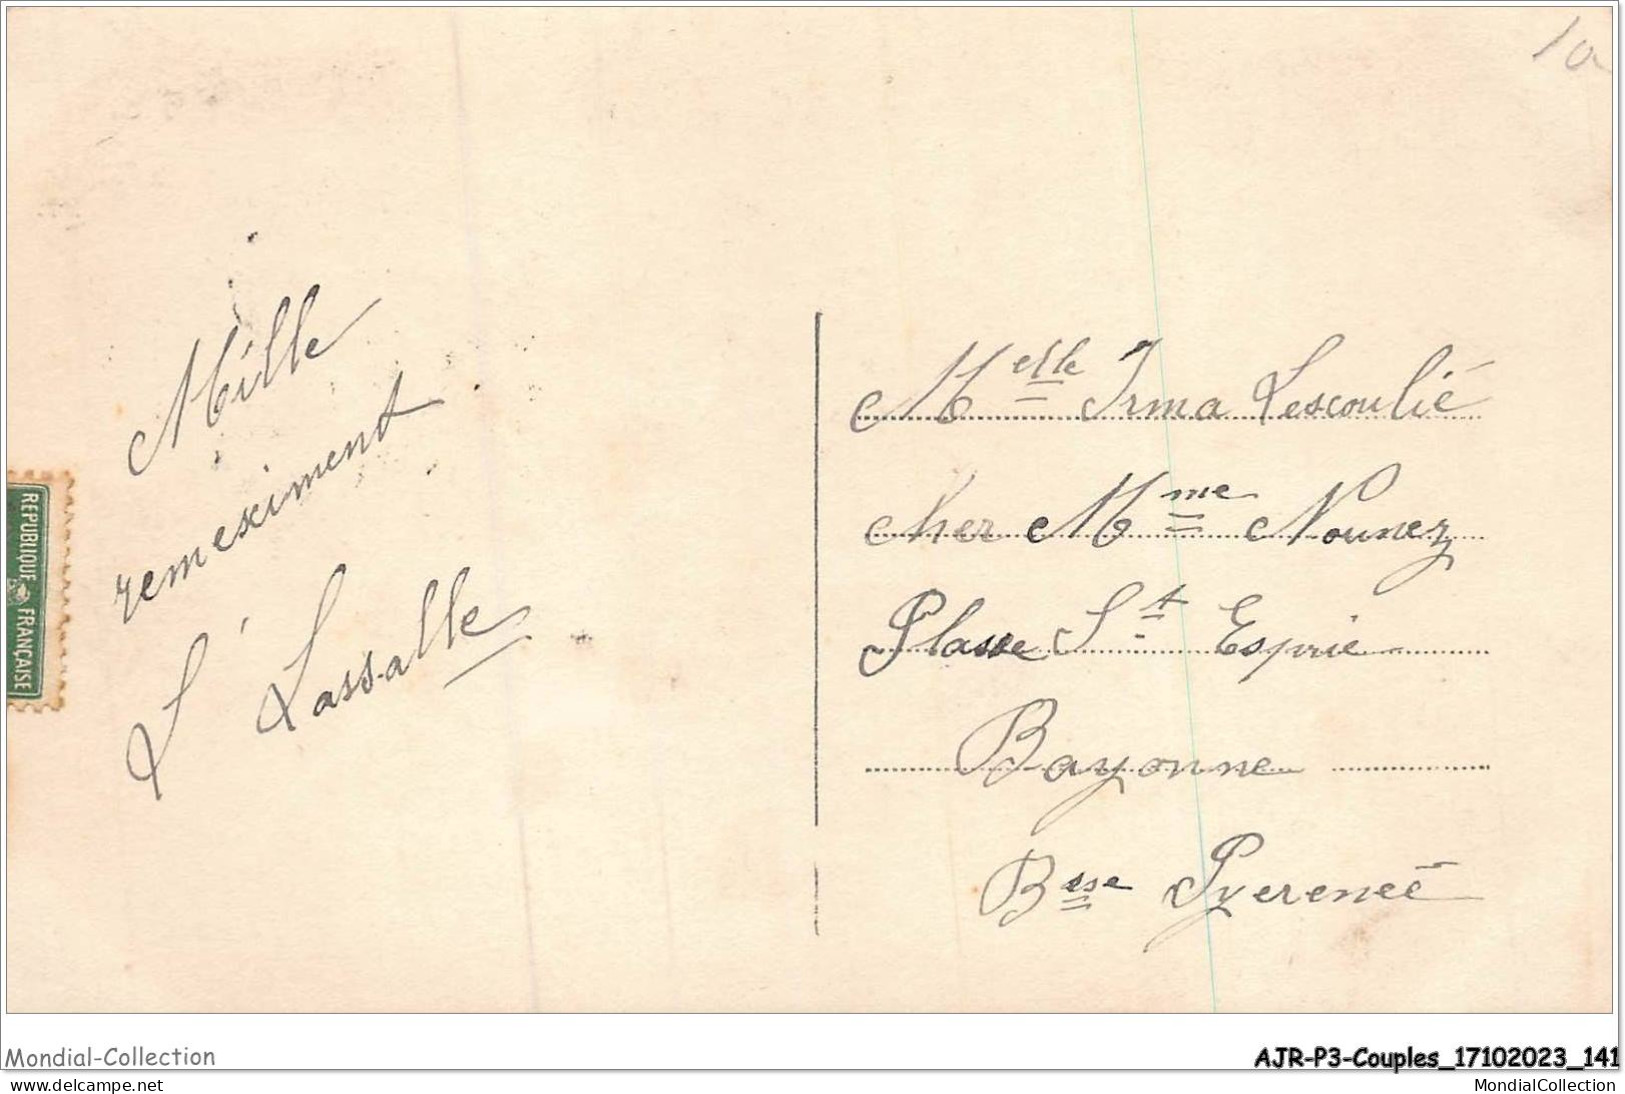 10
Mille
remesciment
L Lassalle
REPUBLIQUE FRANÇAISE
Melle Irma Lescoulié
cher Mme Nounez
Plasse St Esprie
Bayonne
Bsse Pyereneé
Mondial-Collection
AJR-P3-Couples_17102023_141
www.delcampe.net
MondialCollection